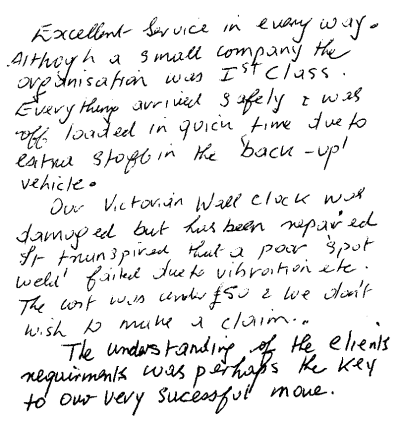 Excellent Service in every way.
Although a small company the
organisation was Ist Class.
Everything arrived safely & was
off loaded in quick time due to
extra staff in the 'back-up'
vehicle.
Our Victorian Wall Clock was
damaged but has been repaired
It transpired that a poor 'spot
weld' failed due to vibration etc.
The cost was under £50 & we don't
wish to make a claim..
The understanding of the clients
requirments was perhaps the key
to our very sucessful move.